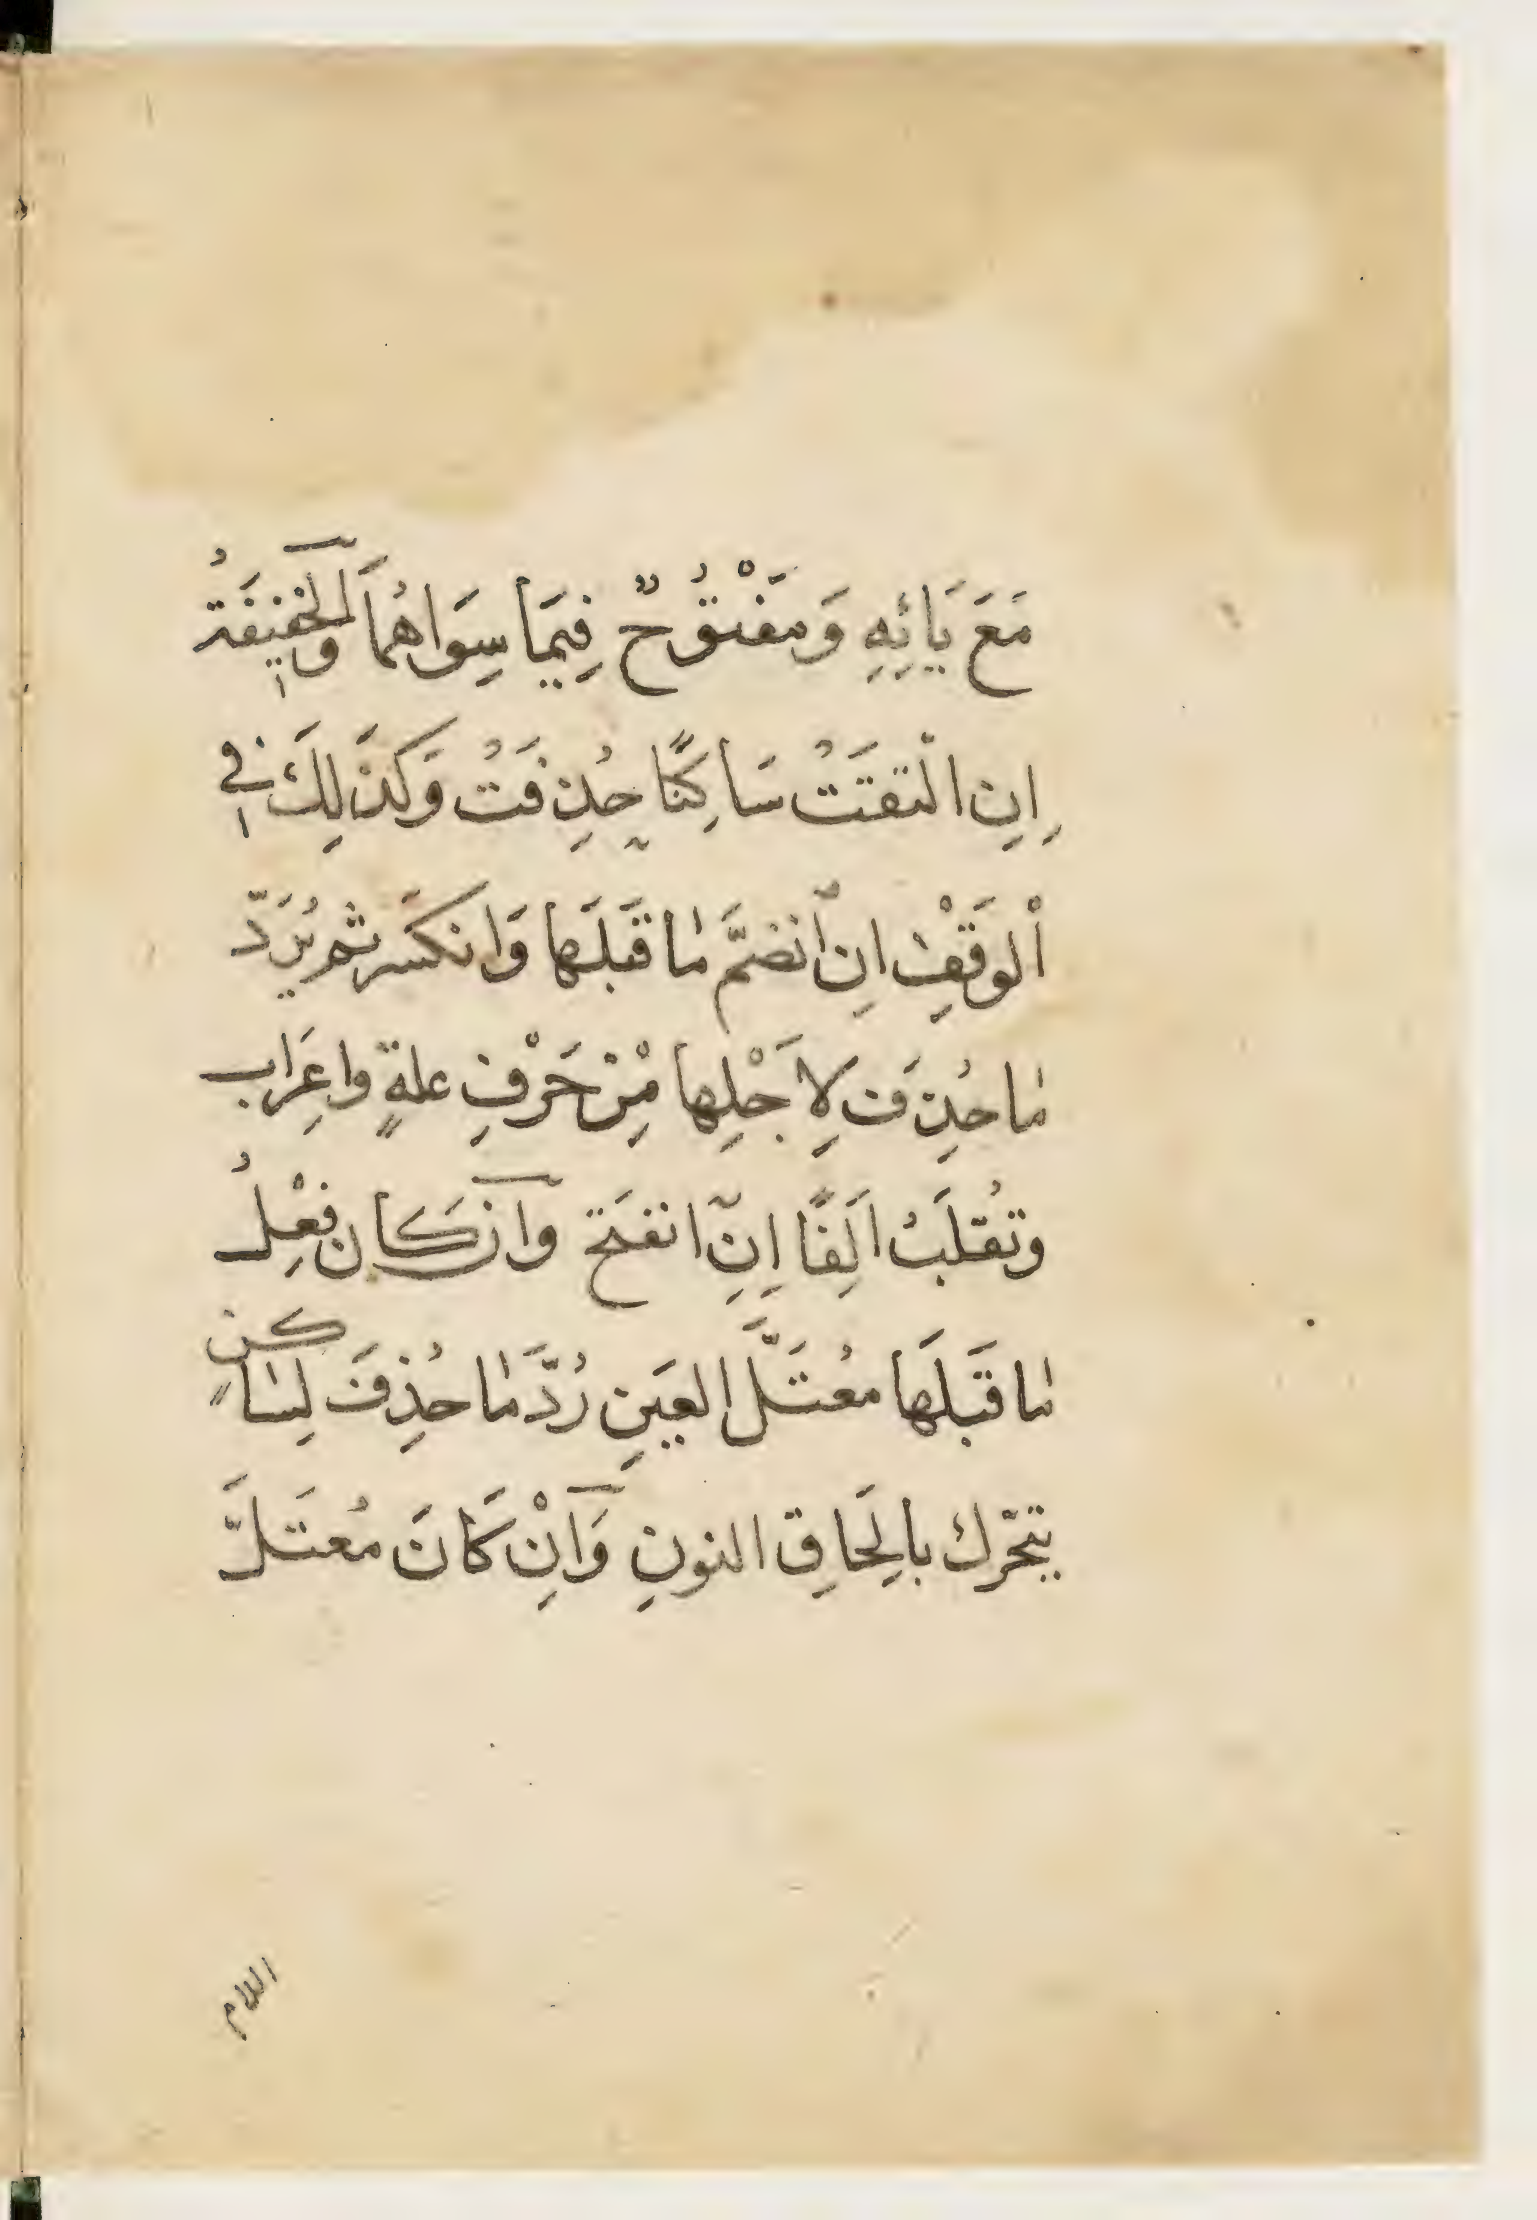 مَعَ يَائِهِ وَمَفْتُوحٌ فِيمَا سِوَاهُمَا وَالْخَفِيفَةُ
اِنِ الْتَقَتْ سَاكِنًا حُذِفَتْ وَكَذَلِكَ فِي
اْلوَقْفِ اِنِ انْضَمَّ مَا قَبلَهَا وَانكَسر ثم يُرَدّ
مَا حُذِفَ لِاَجْلِهَا مِنْ حَرْفِ علةٍ واِعِرَاب
وتُقلَبُ اَلِفًا اِنِ انفَتَح وَاِن كَان فِعْلُ
مَا قَبَلَهَا مُعْتَلَّ العَينِ رُدَّ مَا حُذِفَ لِسَاكنٍ
يتحَرّك بِالِحَاقِ النونِ وَاِنْ كَانَ مُعتَلَّ
اللام